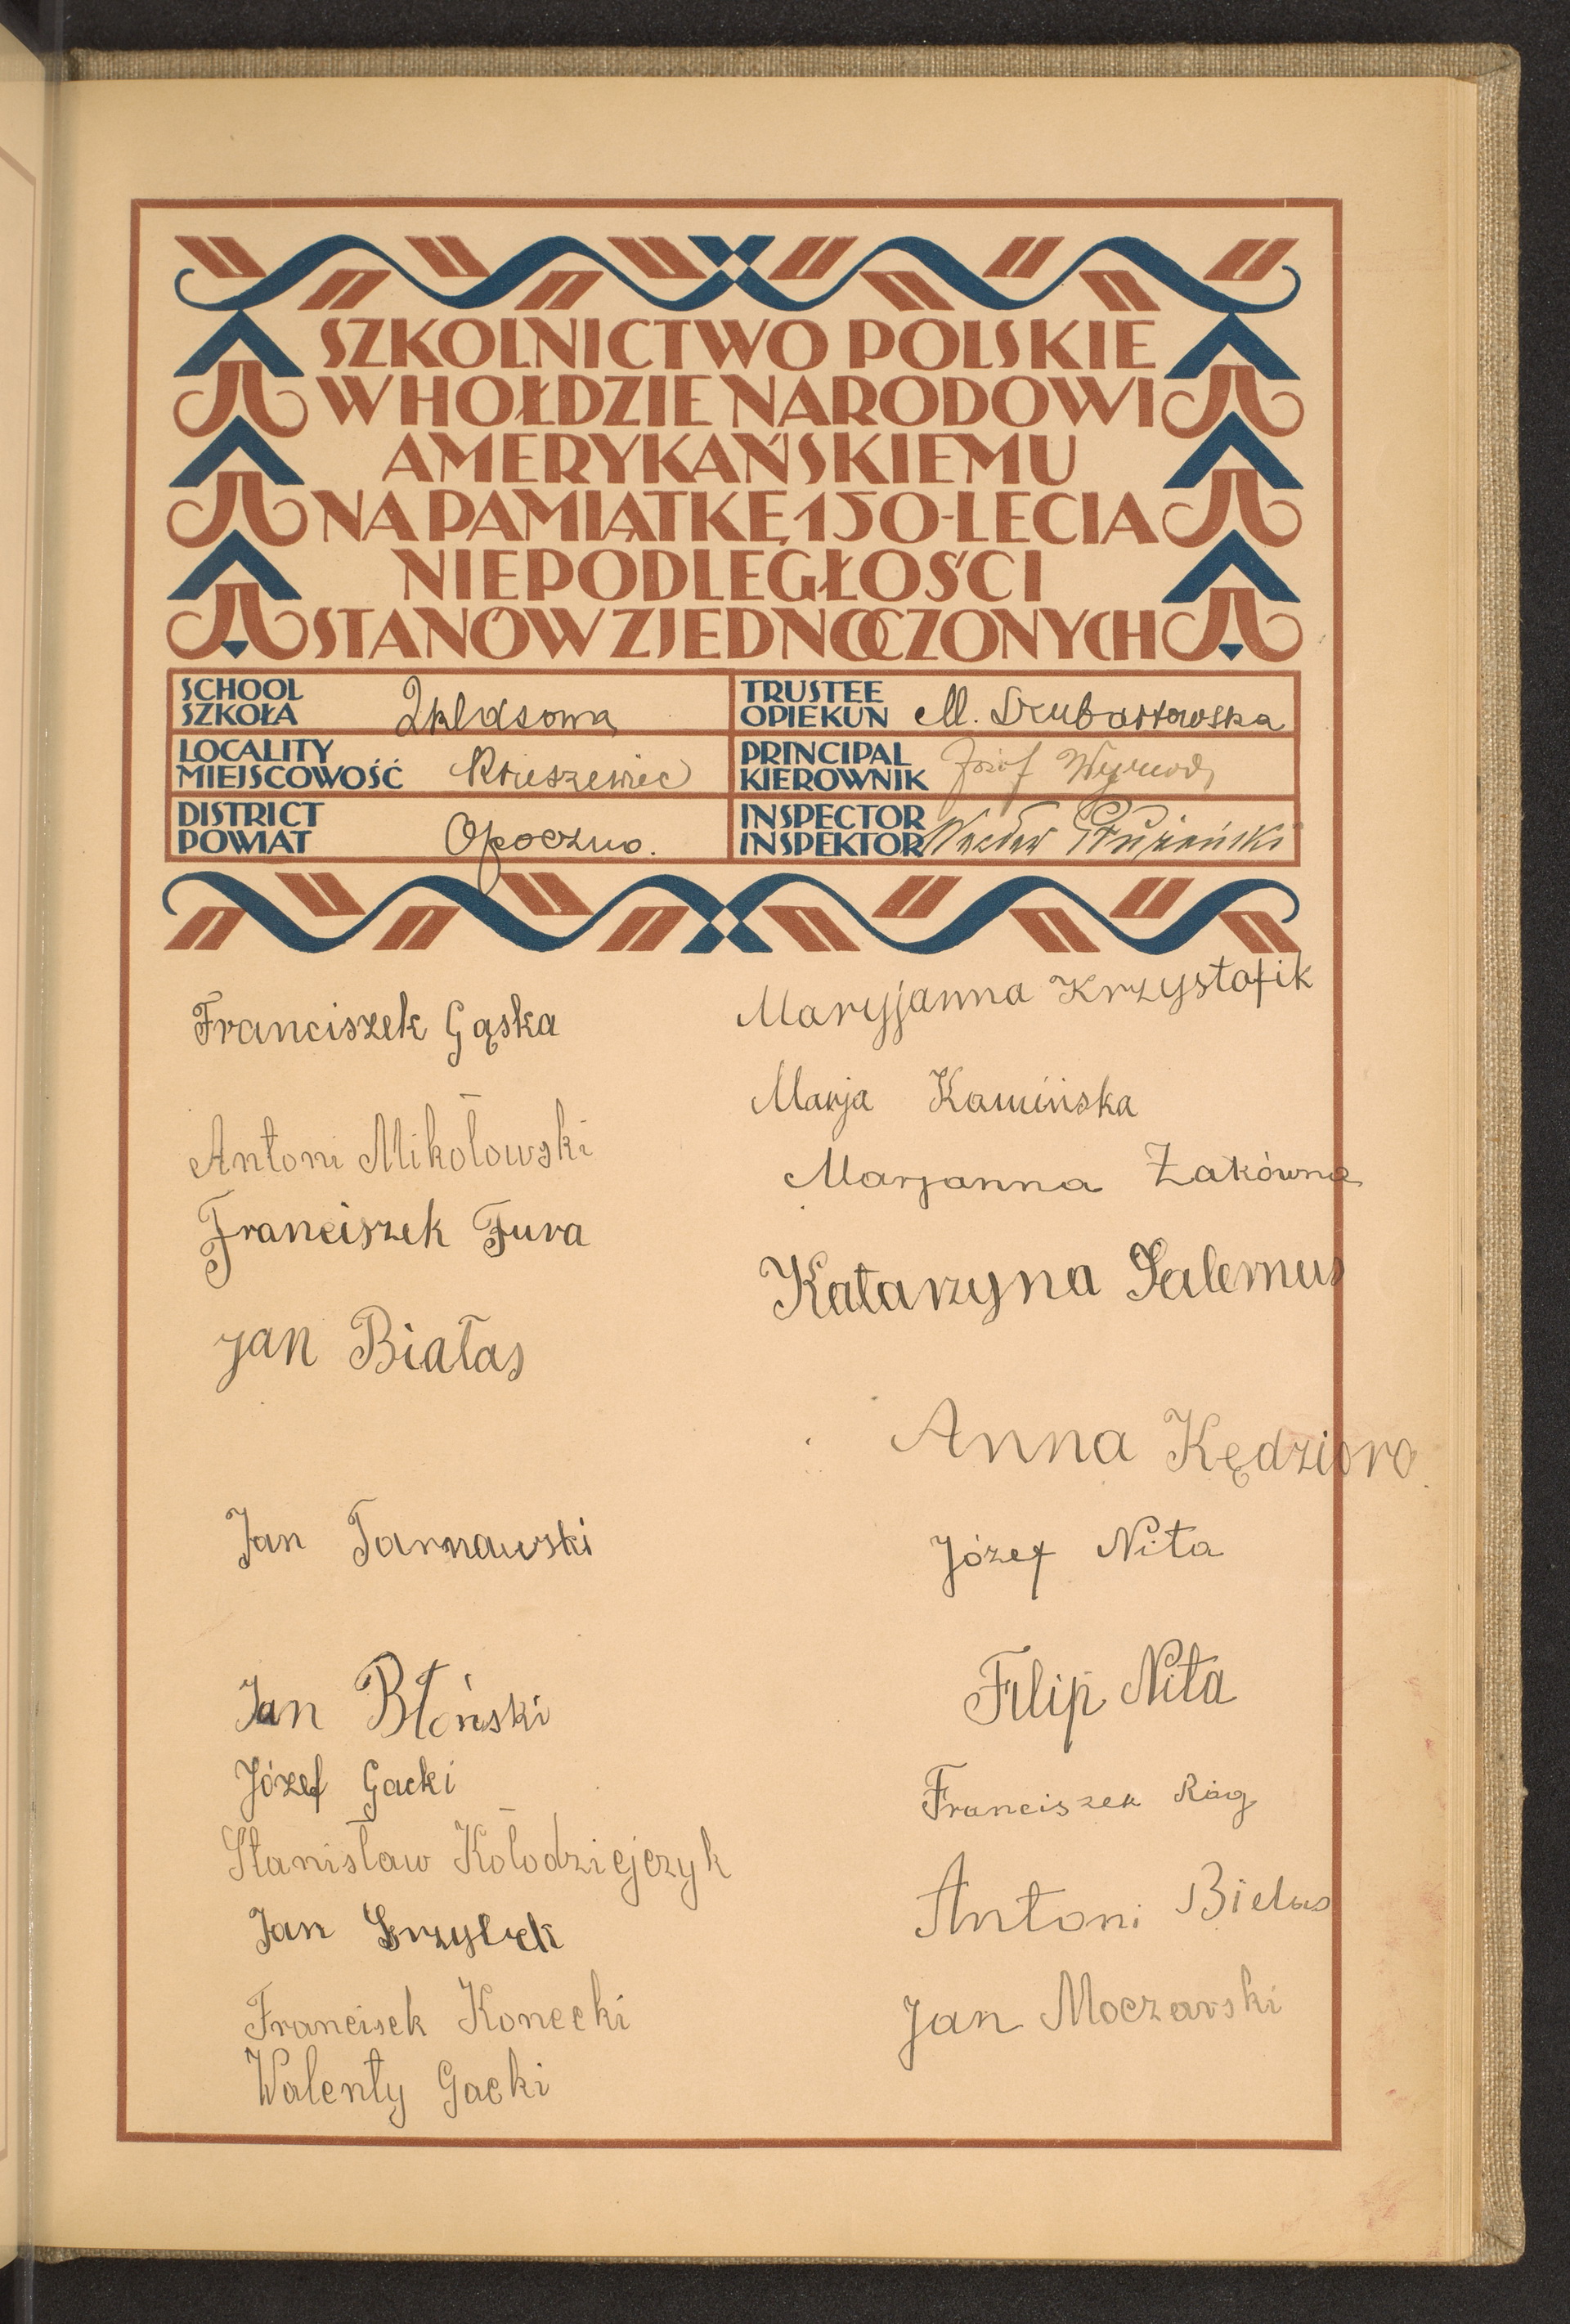 SZKOLNICTWO POLSKIE
W HOŁDZIE NARODOWI
AMERYKAŃSKIEMU
NA PAMIĄTKĘ 150-LECIA
NIEPODLEGŁOŚCI
STANÓW ZJEDNOCZONYCH
SCHOOL
SZKOŁA 2klasowa
LOCALITY
MIEJSCOWOŚĆ
DISTRICT
POWIAT Opoczno.
TRUSTEE
OPIEKUN M.
PRINCIPAL
KIEROWNIK Józef
INSPECTOR
INSPEKTOR Wacław
Franciszek Gąska
Antoni Mikołowski
Franciszek Fura
Jan Białas
Jan Tarnawski
Jan Błoński
Józef Gacki
Stanisław Kołodziejczyk
Jan
Francisek Konecki
Walenty Gacki
Maryjanna Krzystofik
Marja Kamińska
Marjanna Żakówna
Katarzyna Salernus
Anna Kędziora
Józef Nita
Filip Nita
Franciszek Róg
Antoni Bielas
Jan Moczarski